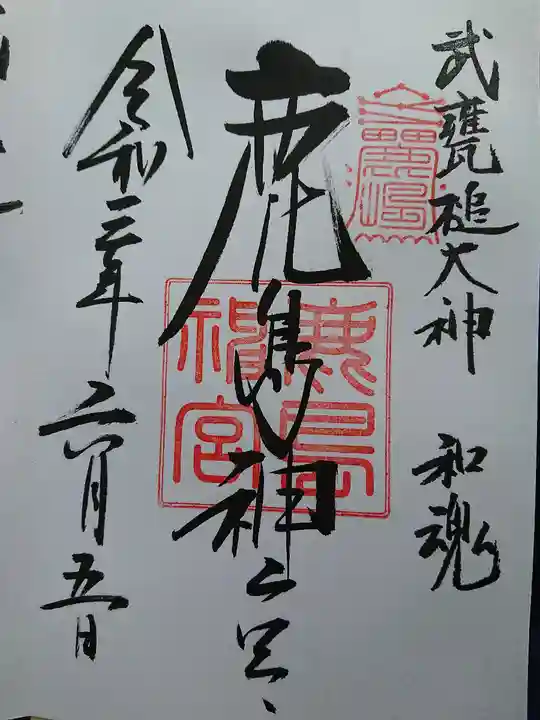 武甕槌大神 和魂
鹿島神宮
令和三年六月五日
鹿島
神宮